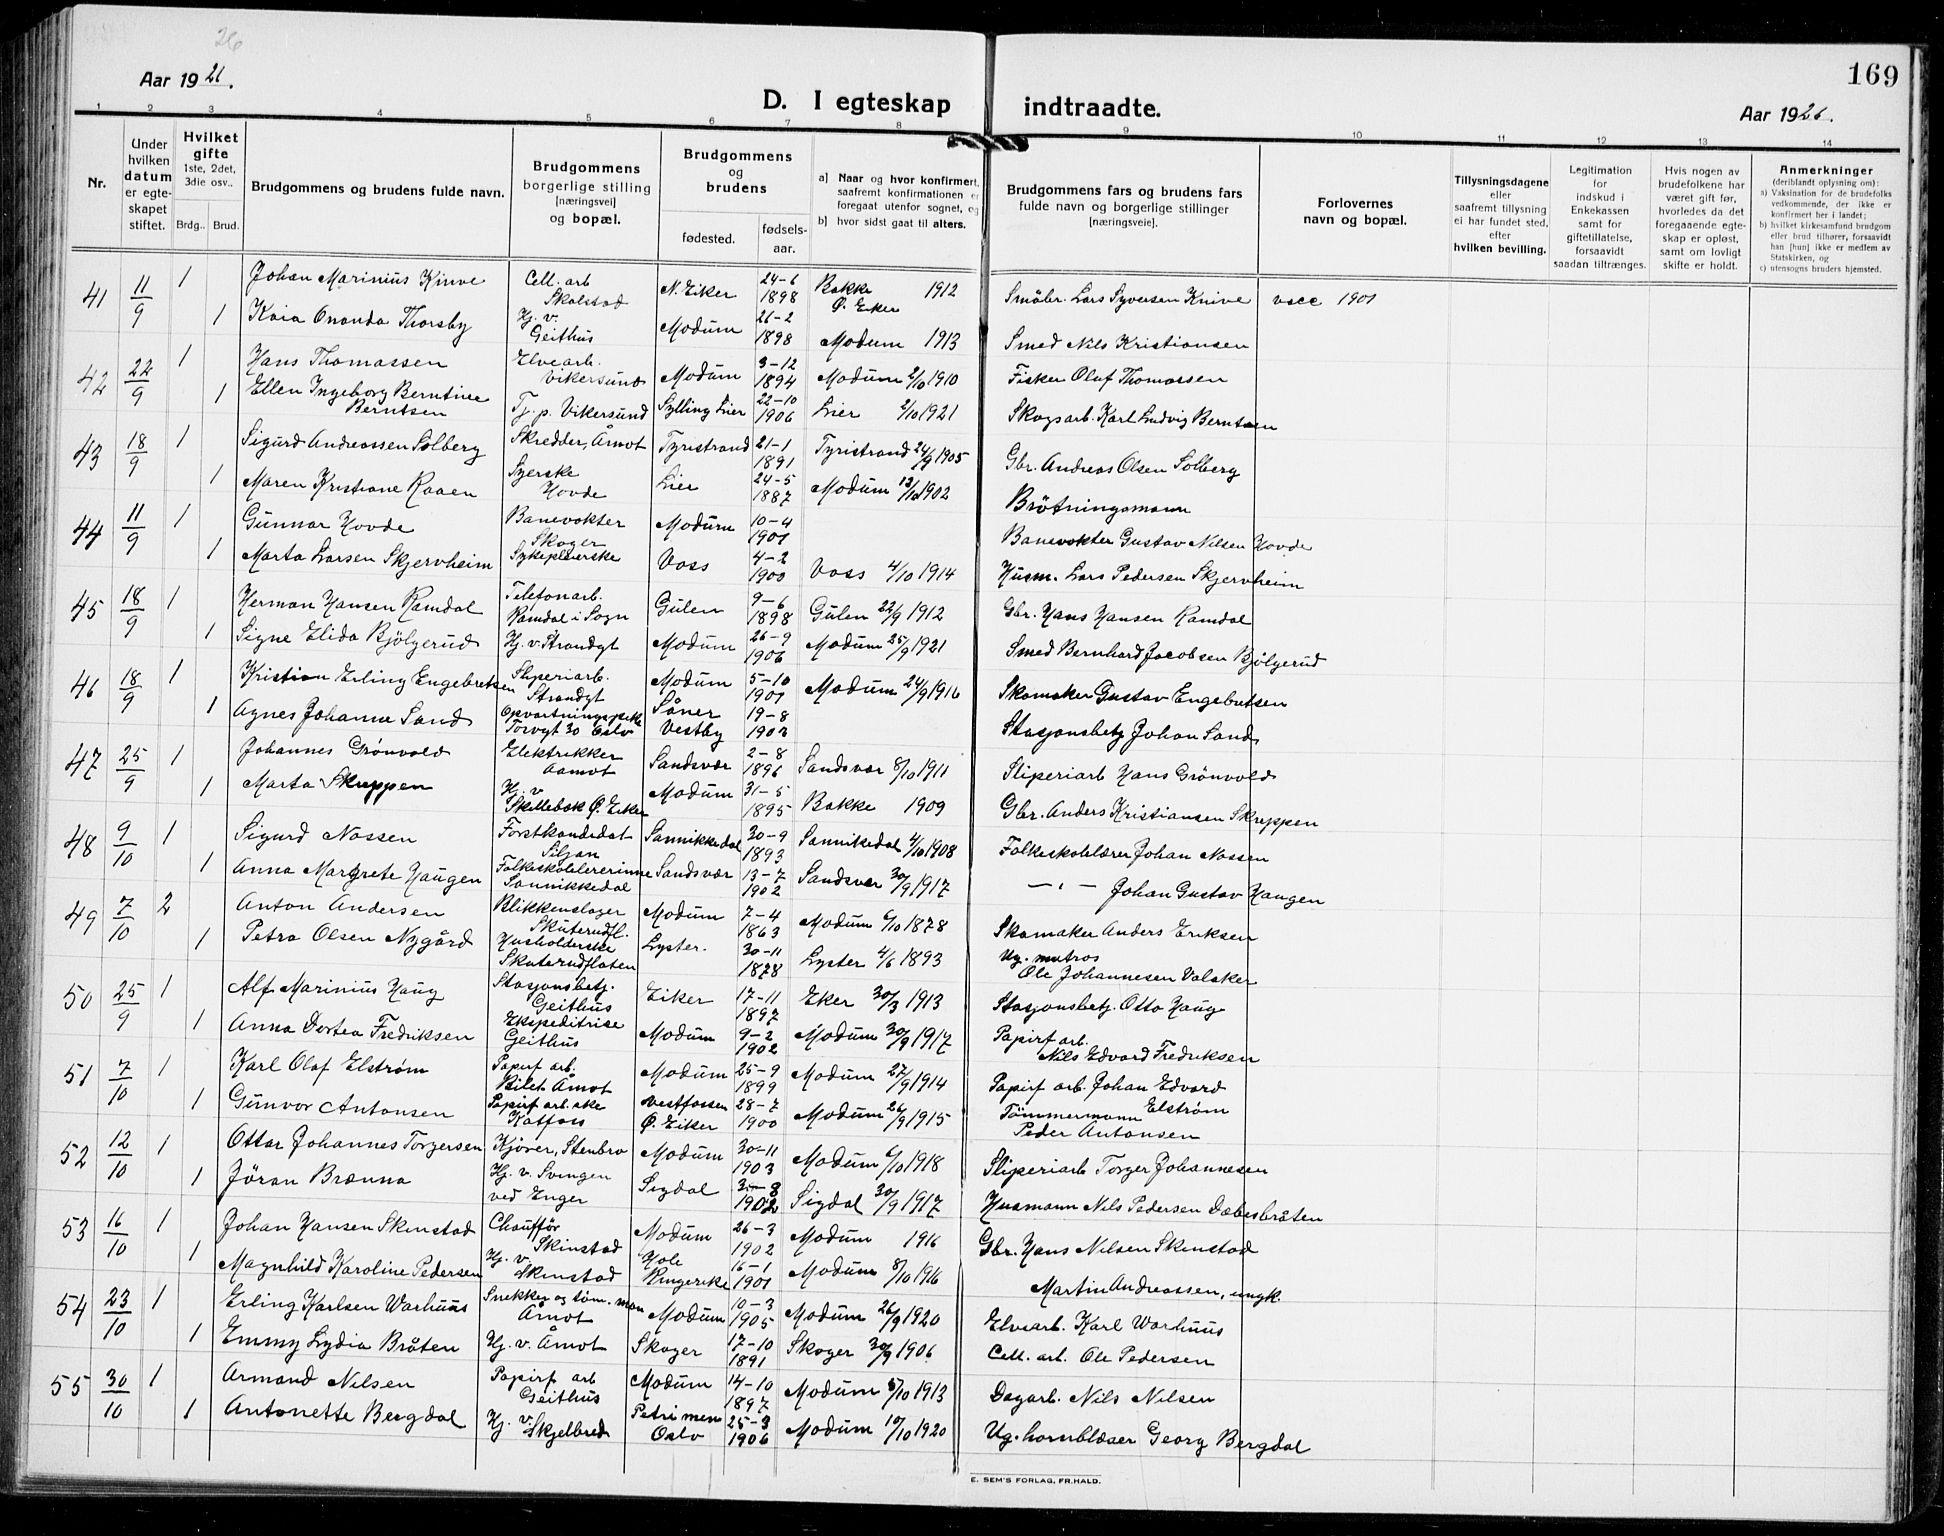 26
Aar 1921.
D. I egteskap indtraadte.
Aar 1926.
169
1 2 3 4 5 6 7 8 9 10 11 12 13 14
Nr.
Under hvilken datum er egte-skapet stiftet.
Hvilket gifte 1ste, 2det, 3die osv..
Brdg.. Brud.
Brudgommens og brudens fulde navn.
Brudgommens borgerlige stilling [næringsvei] og bopæl.
Brudgommens og brudens
fødested. fødsels-aar.
a) Naar og hvor konfirmert, saafremt konfirmationen er foregaat utenfor sognet, og
b) hvor sidst gaat til alters.
Brudgommens fars og brudens fars fulde navn og borgerlige stillinger [næringsveie].
Forlovernes navn og bopæl.
Tillysningsdagene eller saafremt tillysning ei har fundet sted, efter hvilken bevilling.
Legitimation for indskud i Enkekassen samt for giftetillatelse, forsaavidt saadan tiltrænges.
Hvis nogen av brudefolkene har været gift før, hvorledes da det foregaaende egte-skap er opløst, samt om lovligt skifte er holdt.
Anmerkninger (deriblandt oplysning om):
a) Vaksination for de brudefolks vedkommende, der ikke er konfirmert her i landet;
b) hvilket kirkesamfund brudgom eller brud tilhører, forsaavidt han [hun] ikke er medlem av Statskirken, og
c) utensogns bruders hjemsted.
41 11/9 1 Johan Marinius Knive Cell. arb Skalstad N. Eiker 24-6 1898 Bakke Ø. Eker 1912 Småbr. Lars Syversen Knive vacc 1901
1 Kaia Ananda Thorsby Hj. v. Geithus Modum 26-2 1898 Modum 1913 Smed Nils Kristiansen
42 22/9 1 Hans Thomassen Elvearb. Vikersund Modum 3-12 1894 Modum 2/10 1910 Fisker Olaf Thomassen
1 Ellen Ingeborg Berntine Berntsen Tj. p. Vikersund Sylling Lier 22-10 1906 Lier 2/10 1921 Skogsarb. Karl Ludvig Berntsen
43 18/9 1 Sigurd Andreassen Solberg Skredder, Åmot Tyristrand 21-1 1891 Tyristrand 24/9 1905 Gbr. Andreas Olsen Solberg
1 Maren Kristiane Raaen Syerske Hovde Lier 24-5 1887 Modum 12/10 1902 Brötningsmann
44 11/9 1 Gunnar Hovde Banevokter Skoger Modum 10-4 1901 Banevokter Gustav Nilsen Hovde
1 Marta Larsen Skjervheim Sykepleierske Voss 4-2 1900 Voss 4/10 1914 Husm. Lars Pedersen Skjervheim
45 18/9 1 Herman Hansen Ramdal Telefonarb. Ramdal i Sogn Gulen 9-6 1898 Gulen 22/9 1912 Gbr. Hans Hansen Ramdal
1 Signe Elida Bjölgerud Hj. v. Strandgt Modum 26-9 1906 Modum 25/9 1921 Smed Bernhard Jacobsen Bjölgerud
46 18/9 1 Kristian Erling Engebretsen Sliperiarb. Strandgt Modum 5-10 1901 Modum 24/9 1916 Skomaker Gustav Engebretsen
1 Agnes Johanne Sand Opvartningspike Torvgt 30 Oslo Såner Vestby 19-8 1902 Stasjonsbetj Johan Sand
47 25/9 1 Johannes Grönvold Elektrikker Aamot Sandsvær 2-8 1896 Sandsvær 8/10 1911 Sliperiarb Hans Grönvold
1 Marta Skreppen Hj. v Skillebæk Ø. Eiker Modum 31-5 1895 Bakke 1909 Gbr. Anders Kristiansen Skreppen
48 9/10 1 Sigurd Nossen Forstkandidat Siljan Sannikkedal 30-9 1893 Sannikedal 4/10 1908 Folkeskolelærer Johan Nossen
1 Anna Margrete Haugen Folkeskolelererinne Sannikkedal Sandsvær 13-7 1902 Sandsvær 30/9 1917 — " — Johan Gustav Haugen
49 7/10 2 Anton Andersen Blikkenslager Skuterudfl. Modum 7-4 1863 Modum 6/10 1878 Skomaker Anders Eriksen
1 Petra Olsen Nygård Husholderske Skuterudflaten Lyster. 30-11 1878 Lyster 4/6 1893 Ug. matros Ole Johannesen Valaker
50 25/9 1 Alf Marinius Haug Stasjonsbetj. Geithus Eiker 17-11 1897 Eker 30/3 1913 Stasjonsbetj. Otto Haug
1 Anna Dortea Fredriksen Ekspeditrise Geithus Modum 9-2 1902 Modum 30/9 1917 Papirf arb. Nils Edvard Fredriksen
51 7/10 1 Karl Olaf Elström Papirf arb. Bilet Åmot Modum 25-9 1899 Modum 27/9 1914 Papirf arb. Johan Edvard Elström
1 Gunvor Antonsen Papirf arb. ske Katfoss Vestfossen Ø. Eiker 28-7 1900 Modum 26/9 1915 Tömmermann Peder Antonsen
52 12/10 1 Ottar Johannes Torgersen Kjörer, Stenbro Modum 30-11 1903 Modum 6/10 1918 Sliperiarb Torger Johannesen
1 Jöran Brenna Hj. v. Svingen ved Enger Sigdal 3-8 1902 Sigdal 30/9 1917 Husmann Nils Pedersen Dæbesbråten
53 16/10 1 Johan Hansen Skinstad Chauffør Skinstad Modum 26-3 1902 Modum 1916 Gbr. Hans Nilsen Skinstad
1 Magnhild Karoline Pedersen Hj. v. Skinstad Hole Ringerike 16-1 1901 Modum 8/10 1916 Martin Andreassen, ungk.
54 23/10 1 Erling Karlsen Warhuus Snekker og töm. man Åmot Modum 10-3 1905 Modum 26/9 1920 Elvearb. Karl Warhuus
1 Emmy Lydia Bråten Hj. v. Åmot Skoger 17-10 1891 Skoger 30/9 1906 Cell. arb. Ole Pedersen
55 30/10 1 Armand Nilsen Papirf arb Geithus Modum 14-10 1897 Modum 5/10 1913 Dagarb. Nils Nilsen
1 Antonette Bergdal Hj. v. Skjelbred Petri men Oslo 25-3 1906 Modum 10/10 1920 Ug. hornblæser Georg Bergdal
E. SEM'S FORLAG, FR.HALD.